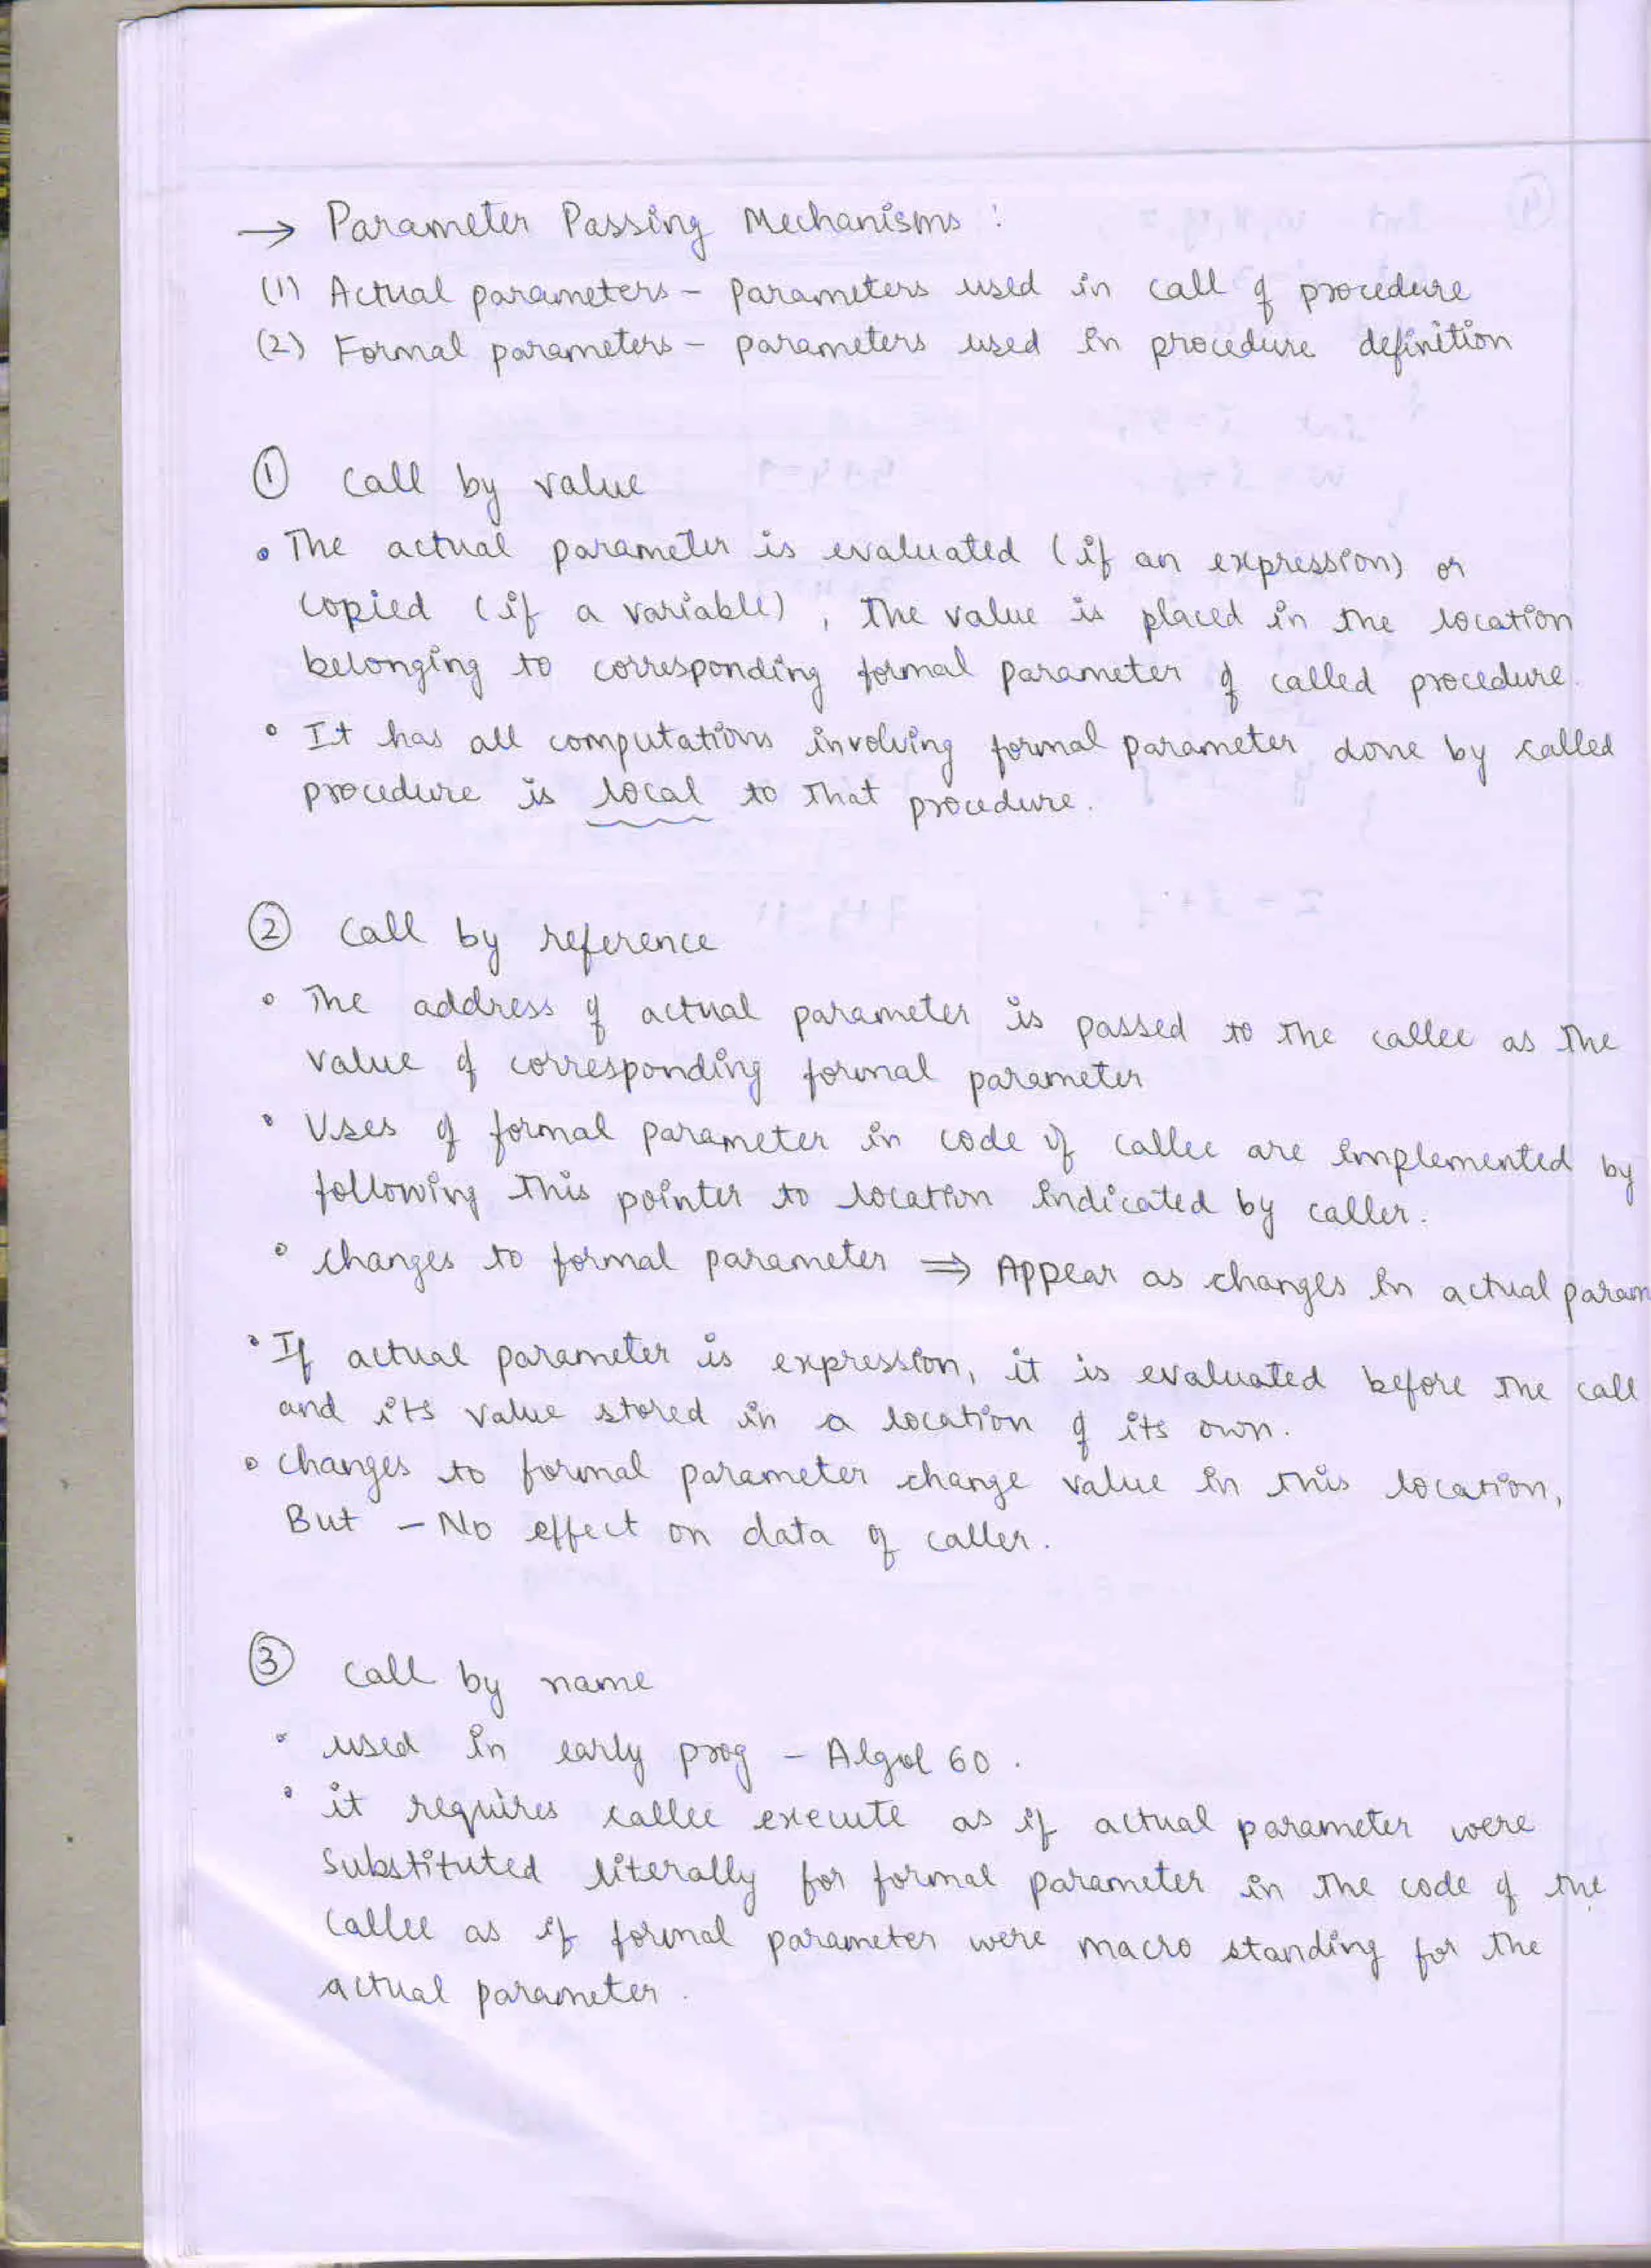 → Parameter Passing Mechanisms :
(1) Actual parameters - parameters used in call of procedure
(2) Formal parameters - parameters used in procedure definition
① Call by value
• The actual parameter is evaluated (if an expression) or
copied (if a variable), The value is placed in the location
belonging to corresponding formal parameter of called procedure.
• It has all computations involving formal parameter done by called
procedure is local to that procedure.
② Call by reference
• The address of actual parameter is passed to the callee as the
value of corresponding formal parameter
• Uses of formal parameter in code of callee are implemented by
following this pointer to location indicated by caller.
• changes to formal parameter ⇒ Appear as changes in actual param
• If actual parameter is expression, it is evaluated before the call
and its value stored in a location of its own.
• changes to formal parameter change value in this location,
But - No effect on data of caller.
③ Call by name
• used in early prog - Algol 60.
• it requires callee execute as if actual parameter were
substituted literally for formal parameter in the code of the
callee as if formal parameter were macro standing for the
actual parameter.